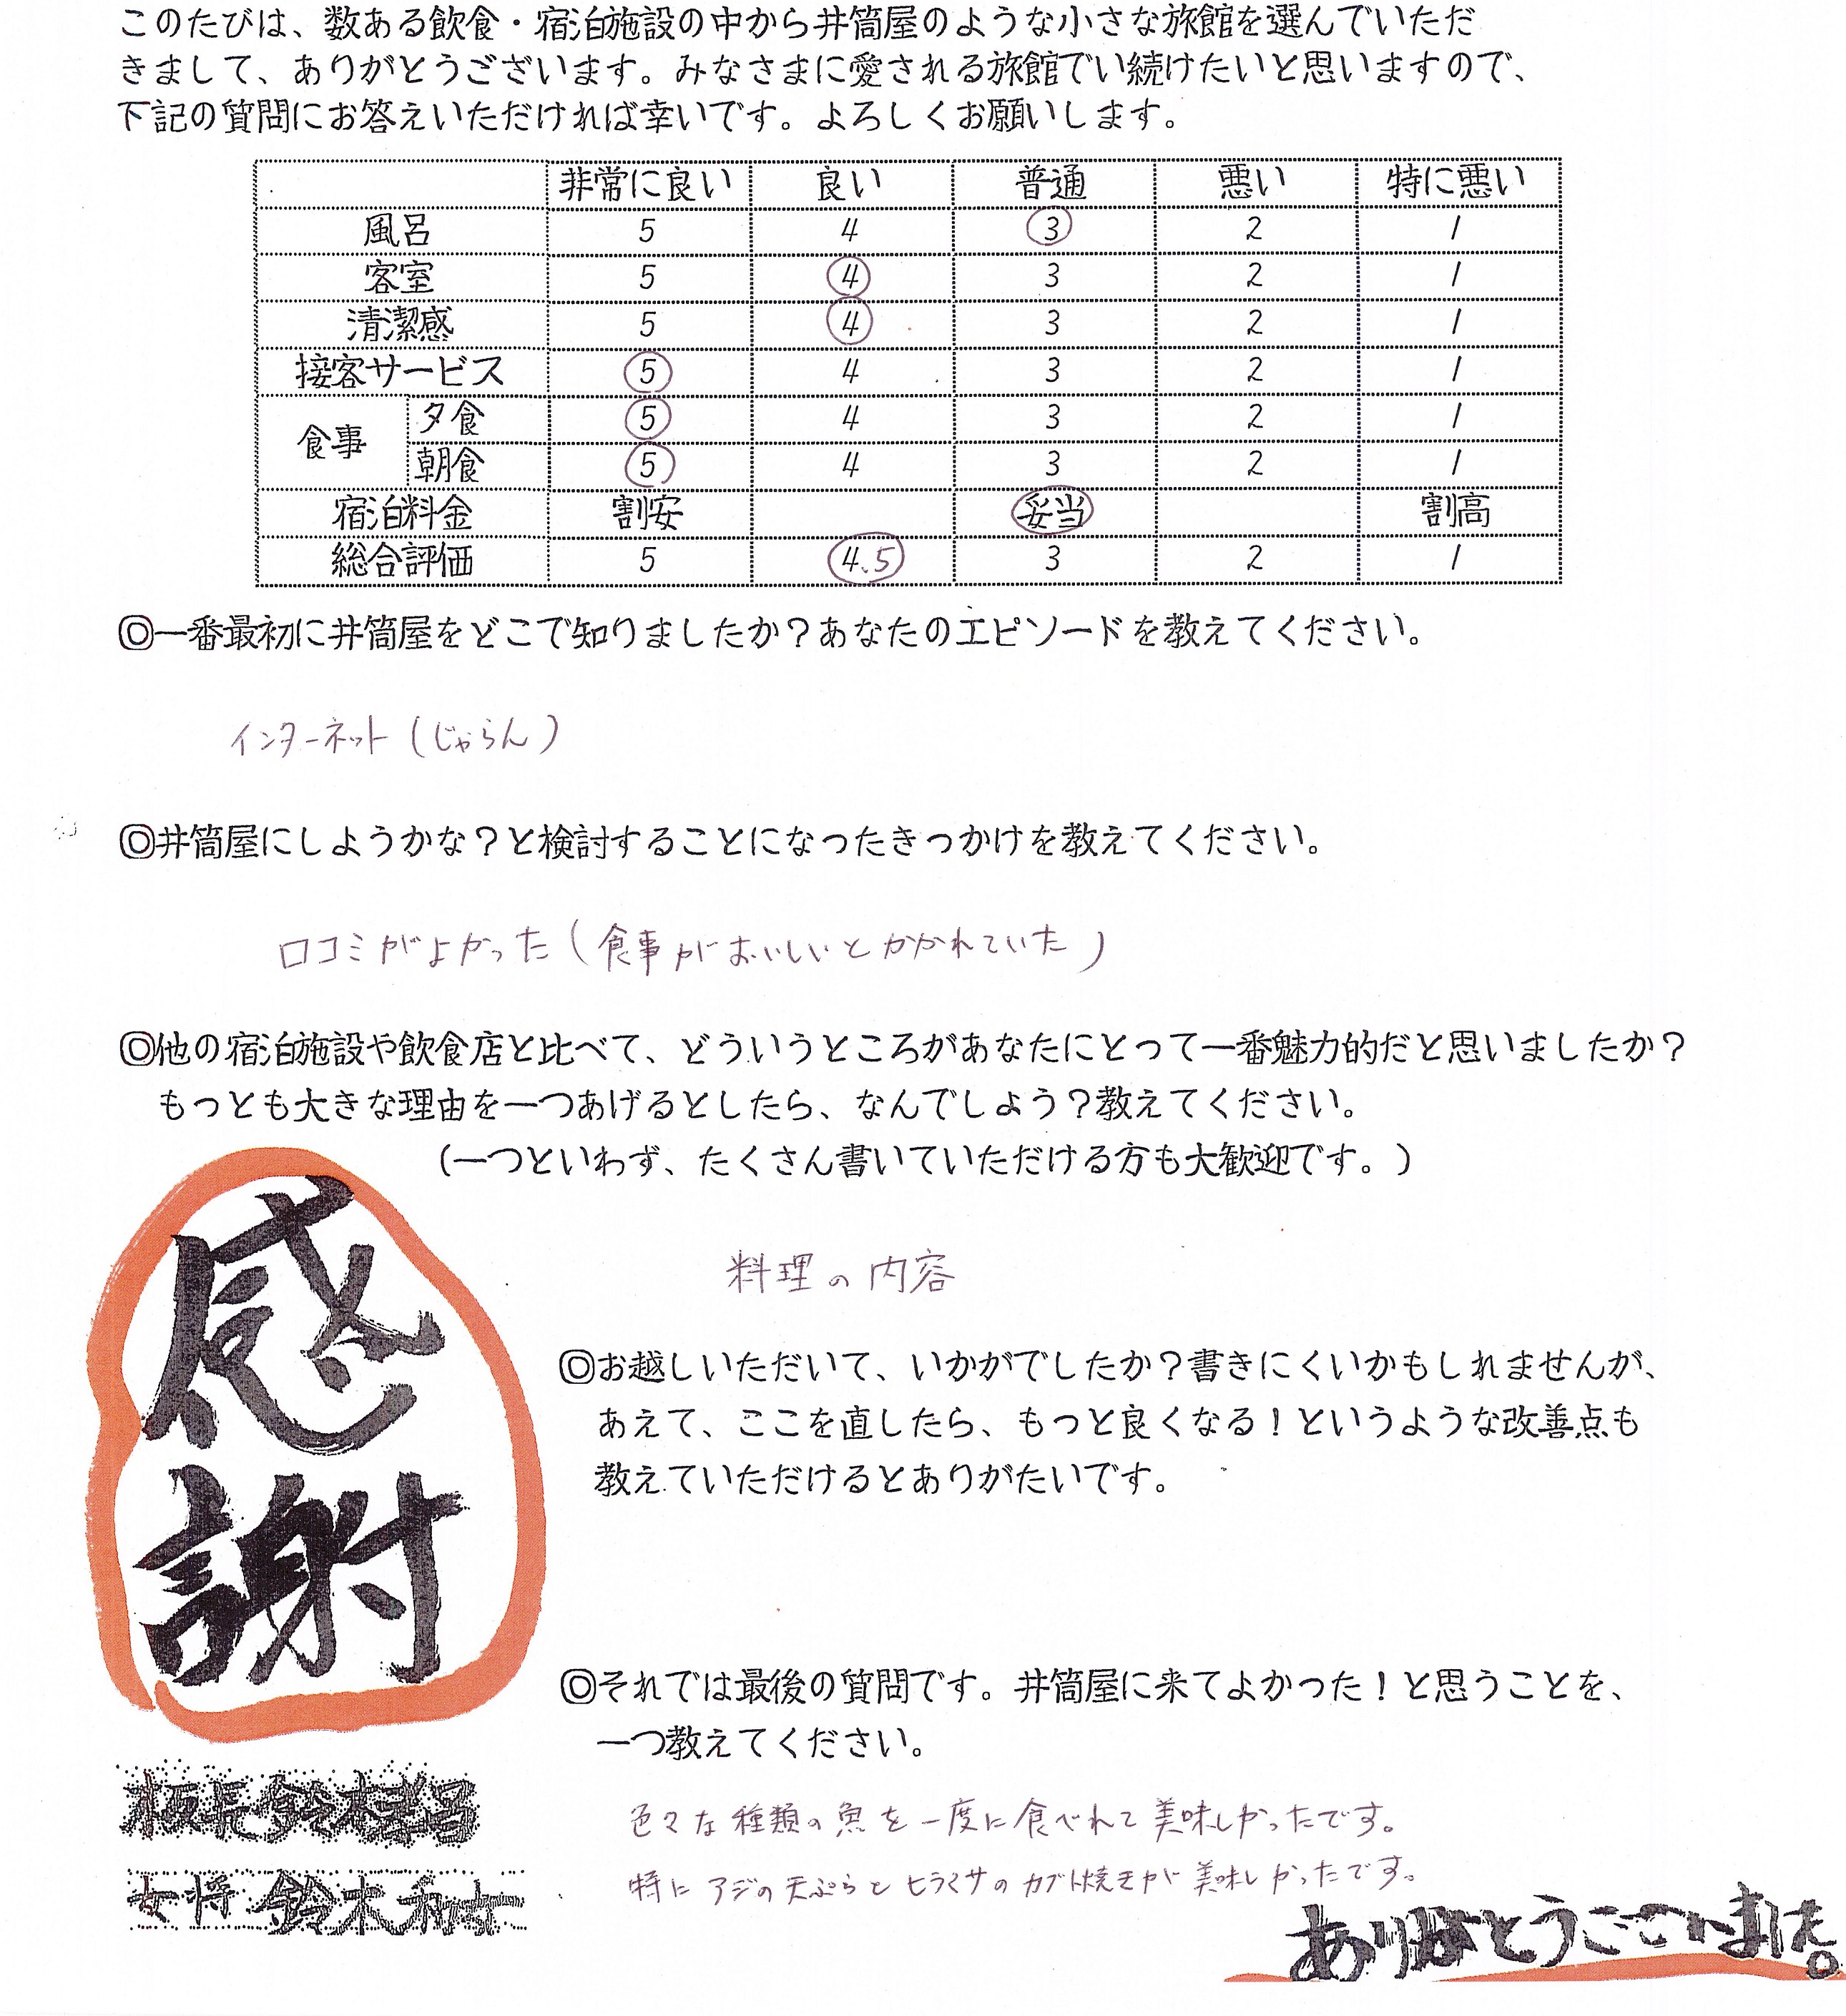 このたびは、数ある飲食・宿泊施設の中から井筒屋のような小さな旅館を選んでいただ
きまして、ありがとうございます。みなさまに愛される旅館でい続けたいと思いますので、
下記の質問にお答えいただければ幸いです。よろしくお願いします。
非常に良い 良い 普通 悪い 特に悪い
風呂 5 4 3 2 1
客室 5 4 3 2 1
清潔感 5 4 3 2 1
接客サービス 5 4 3 2 1
食事 夕食 5 4 3 2 1
朝食 5 4 3 2 1
宿泊料金 割安 妥当 割高
総合評価 5 4.5 3 2 1
◎一番最初に井筒屋をどこで知りましたか？あなたのエピソードを教えてください。
インターネット(じゃらん)
◎井筒屋にしようかな？と検討することになったきっかけを教えてください。
口コミがよかった(食事がおいしいとかかれていた)
◎他の宿泊施設や飲食店と比べて、どういうところがあなたにとって一番魅力的だと思いましたか？
もっとも大きな理由を一つあげるとしたら、なんでしょう？教えてください。
(一つといわず、たくさん書いていただける方も大歓迎です。)
料理の内容
感謝
◎お越しいただいて、いかがでしたか？書きにくいかもしれませんが、
あえて、ここを直したら、もっと良くなる！というような改善点も
教えていただけるとありがたいです。
◎それでは最後の質問です。井筒屋に来てよかった！と思うことを、
一つ教えてください。
色々な種類の魚を一度に食べれて美味しかったです。
特にアジの天ぷらとヒラマサのカブト焼きが美味しかったです。
板長 鈴木
女将 鈴木
ありがとうございました。